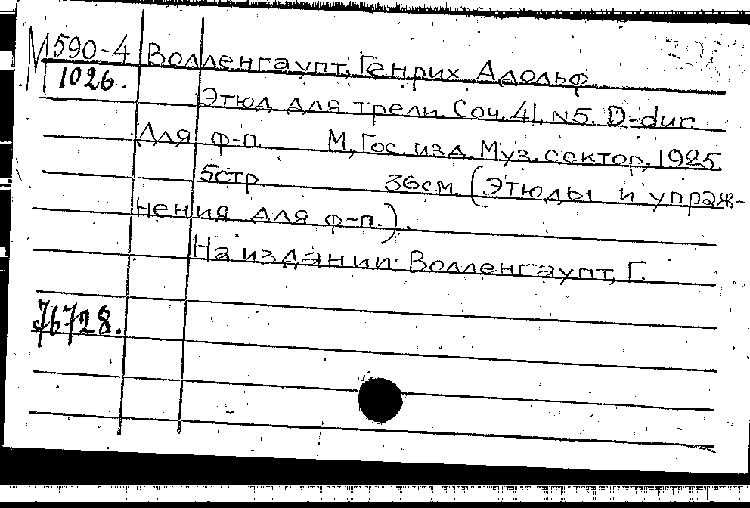 М 590-4 Волленгаупт, Генрих Адольф
1026.
Этюд для трели. Соч. 41. №5. D-dur.
Для ф-п. М, Гос. изд. Муз. сектор, 1925
5стр 36см. (Этюды и упраж-
нения для ф-п.).
На издании: Волленгаупт, Г.
76728.